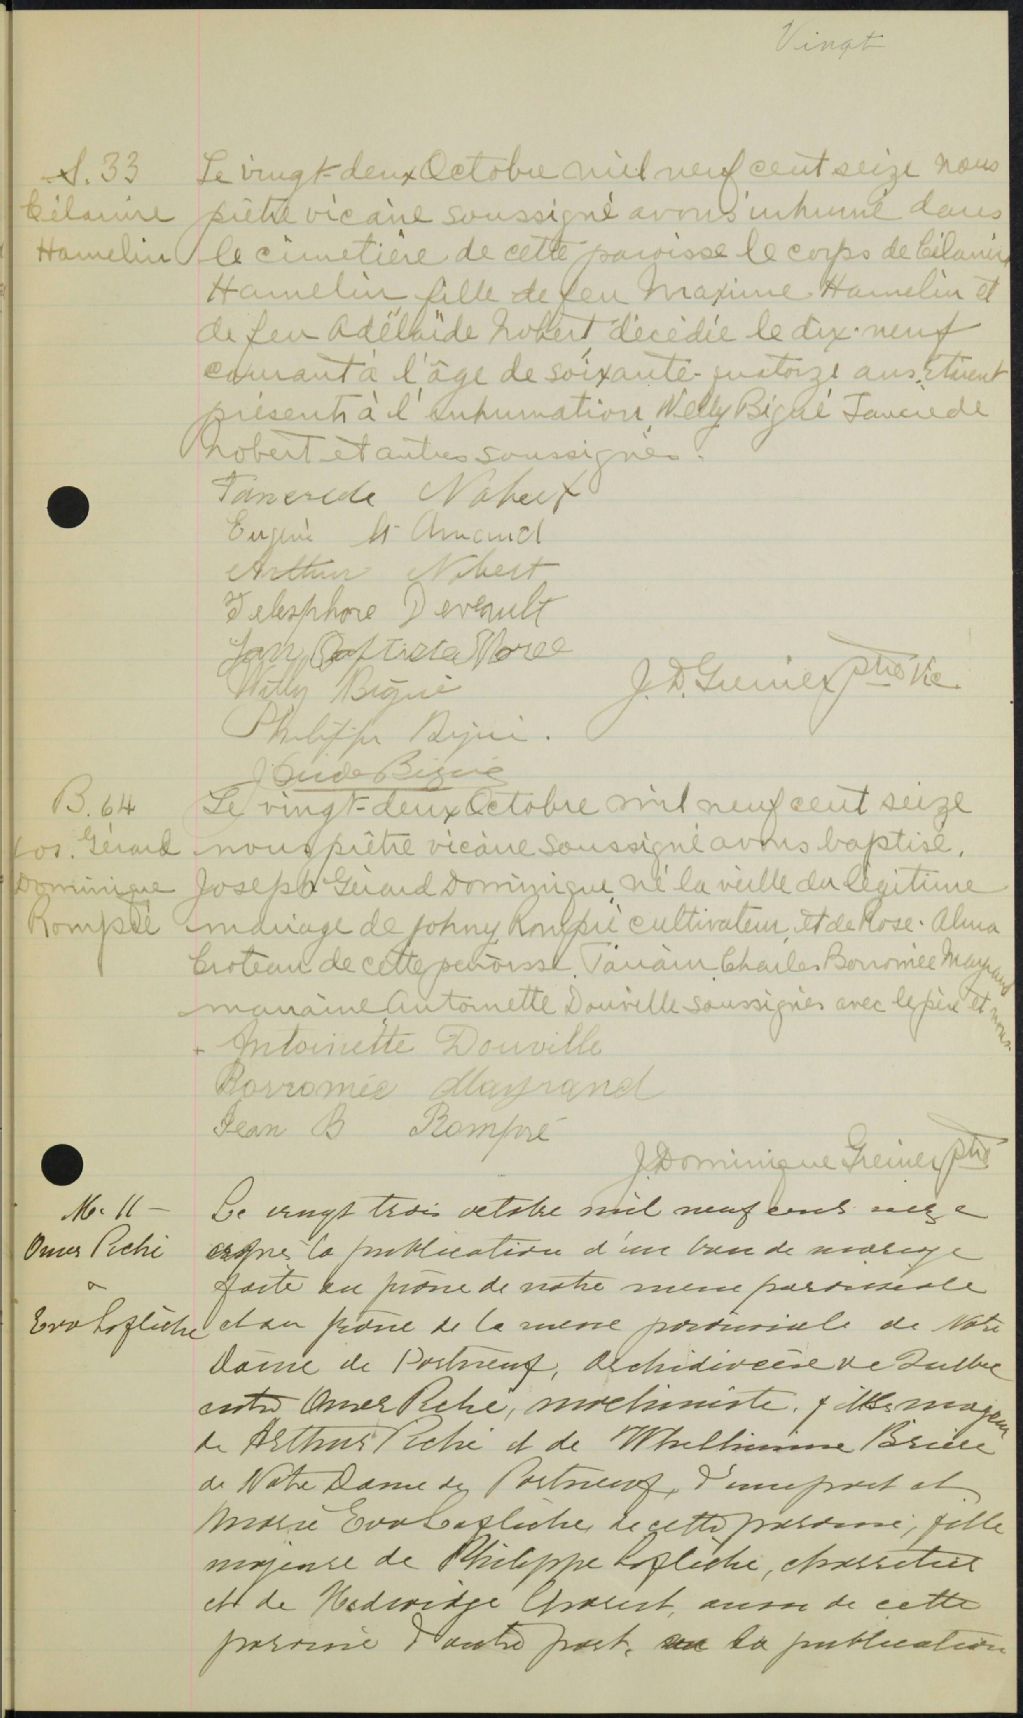 Vingt
S. 33
Célanire
Hamelin
Le vingt-deux Octobre mil neuf cent seize nous
prêtre vicaire soussigné avons inhumé dans
le cimetière de cette paroisse le corps de Célanire
Hamelin fille de feu Maxime Hamelin et
de feu Adélaïde Nobert décédée le dix-neuf
courant à l'âge de soixante-quatorze ans. Etaient
présents à l'inhumation, Welly Bigué Tancrède
Nobert et autres soussignés.
Tancrede Nobert
Eugène St Amand
Arthur Nobert
Telesphore Devault
Baptiste
Willy Bigué
J. D. Grenier ptre Vic.
Philippe Bigué.
Bigué
B. 64
Jos. Gérard
Dominique
Rompré
Le vingt-deux Octobre mil neuf cent seize
nous prêtre vicaire soussigné avons baptisé,
Joseph Gérard Dominique, né la veille du légitime
mariage de Johny Rompré cultivateur, et de Rose-Alma
Croteau de cette paroisse. Parrain Charles Borromée Mayrand
marraine Antoinette Douville soussignés avec le père et nous.
Antoinette Douville
Borromée Mayrand
Jean B Rompré
J. Dominique Grenier ptre
M. 11 -
Omer Piché
&
Eva Laflèche
Le vingt trois octobre mil neuf cent seize
après la publication d'un ban de mariage
faite au prône de notre messe paroissiale
et au prône de la messe paroissiale de Notre
Dame de Portneuf, Archidiocèse de Québec
entre Omer Piché, machiniste, fils majeur
de Arthur Piché et de Whilhimine Brière
de Notre Dame de Portneuf, d'une part et
Marie Eva Laflèche, de cette paroisse, fille
majeure de Philippe Laflèche, charretier
et de Hedwidge Gravel, aussi de cette
paroisse d'autre part. la publication